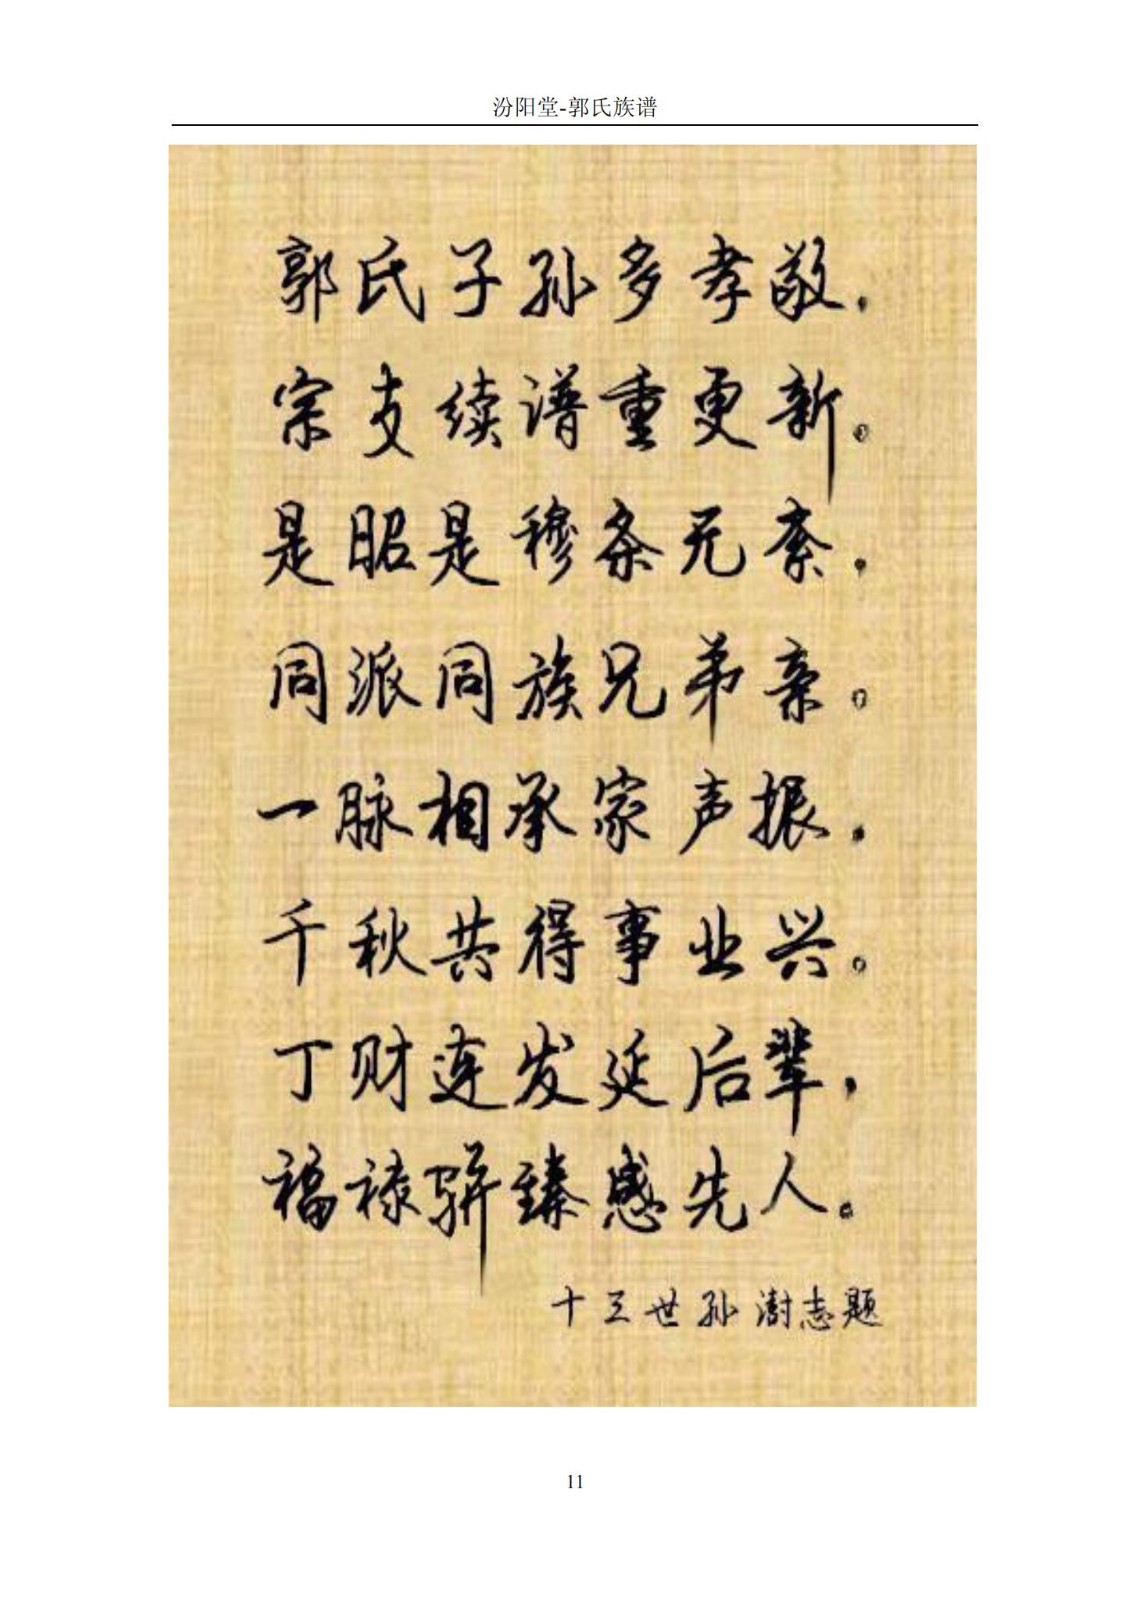 汾阳堂-郭氏族谱
郭氏子孙多孝敬，
宗支续谱重更新。
是昭是穆条无紊，
同派同族兄弟亲。
一脉相承家声振，
千秋共得事业兴。
丁财连发延后辈，
福禄骈臻感先人。
十三世孙澍志题
11